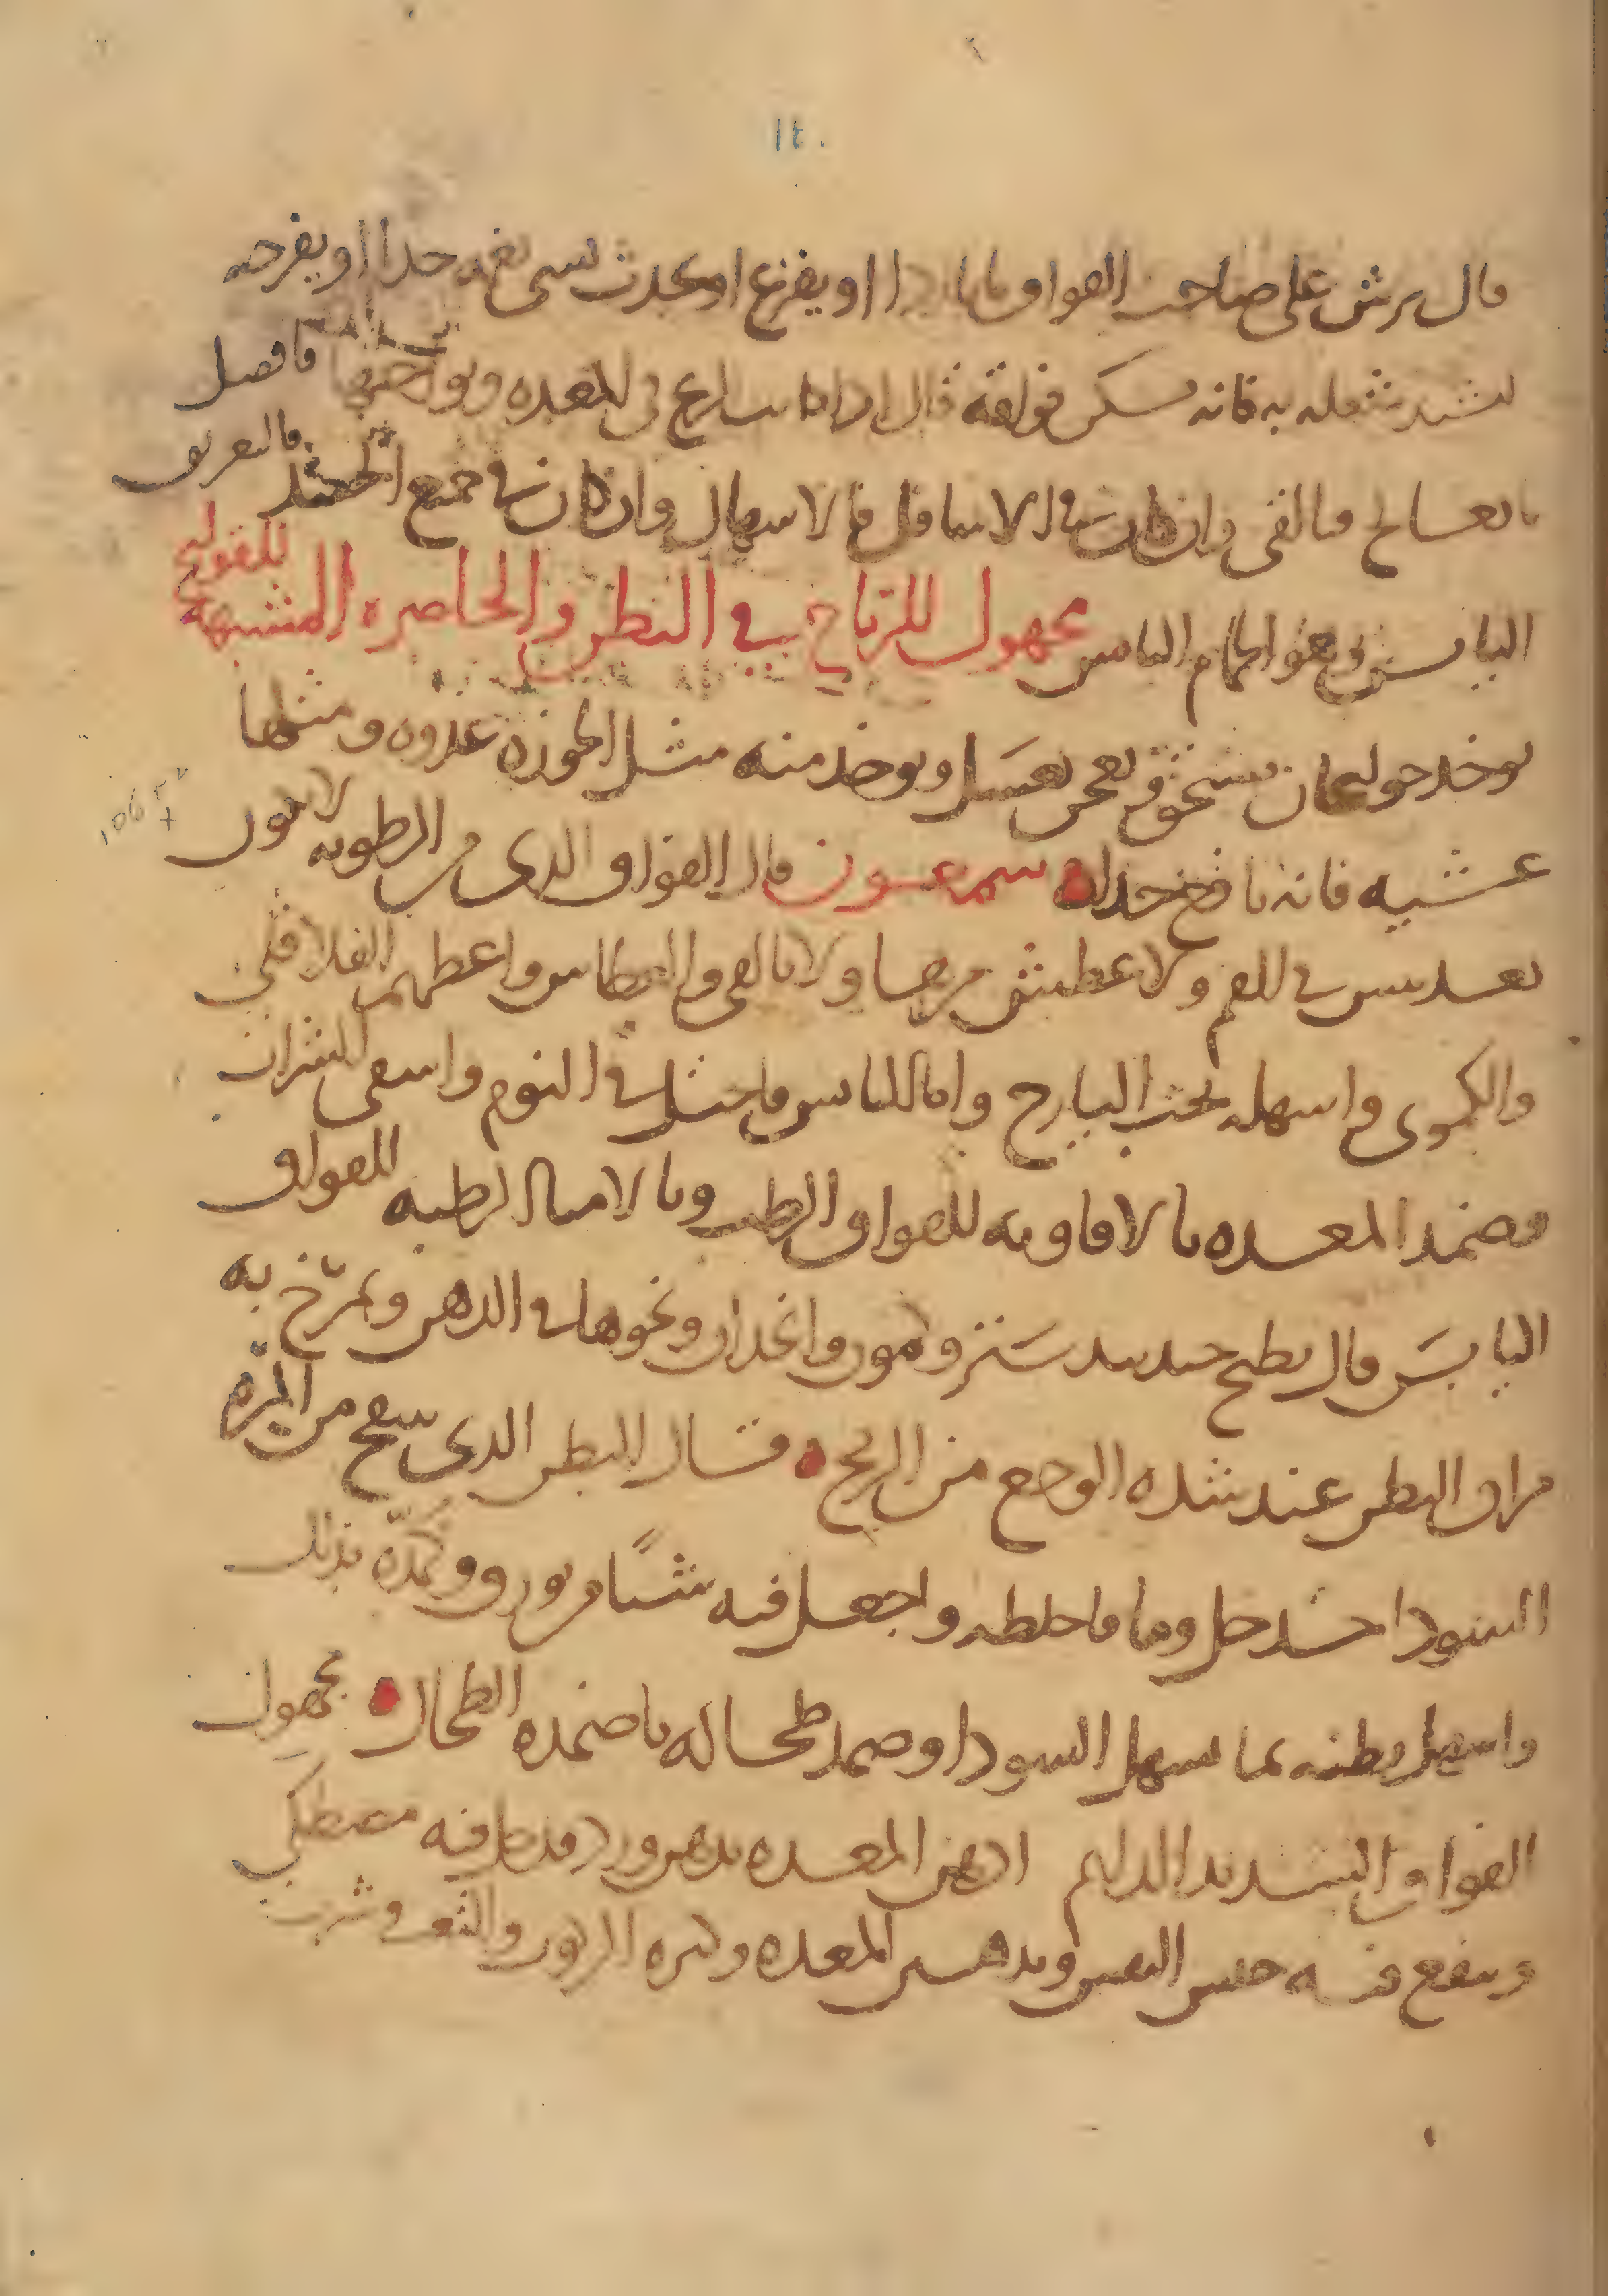 ١٢٠
قال يرش على صاحب الفواق ما بارد او يفزع او يحدث بشى يغمه جدا او يفرحه
لشيد يشغله به فانه يسكن فواقه قال اذا كانت رياح في المعده ونواحيها فافضل
ما تعالج بالقى وان كانت في الاسافل فالاسهال وان كان في جميع الجسد فالتعريق
اليابس وهو الحمام اليابس مجهول للرياح في البطن والخاصره المشبهة للقولنج
يوخذ خولنجان يسحق يعجن بعسل ويوخذ منه مثل الجوزه غدوه ومثلها
عشيه فانه نافع جدا سمعون قال الفواق الذى من الرطوبه لا يكون
بعد يبس في الفم ولا عطش فعالجه بالقى والعطاس واعطهم الفلافلى
والكمونى واسهله بحب اليارج واما اليابس فاحتل في النوم واسقى الشراب
وضمد المعده بالافاويه للفواق الرطب وبالاشيا الرطبه للفواق
اليابس قال يطبخ جندبيدستر وكمون وانجدان ونحوها في الدهن ويمرخ به
مراق البطن عند شده الوجع من الريح قال البطن الذى ينتفخ من المره
السودا خذ خل وما فاخلطه واجعل فيه شيًا من بورق وكمده بذلك
واسهل بطنه بما يسهل السودا وضمد طحاله باضمده الطحال مجهول
الفواق الشديد الدايم ادهن المعده بدهن ورد قد حل فيه مصطكى
وينفع منه حبس النفس وبدهن المعده وكثره الركوب والتعب وشرب